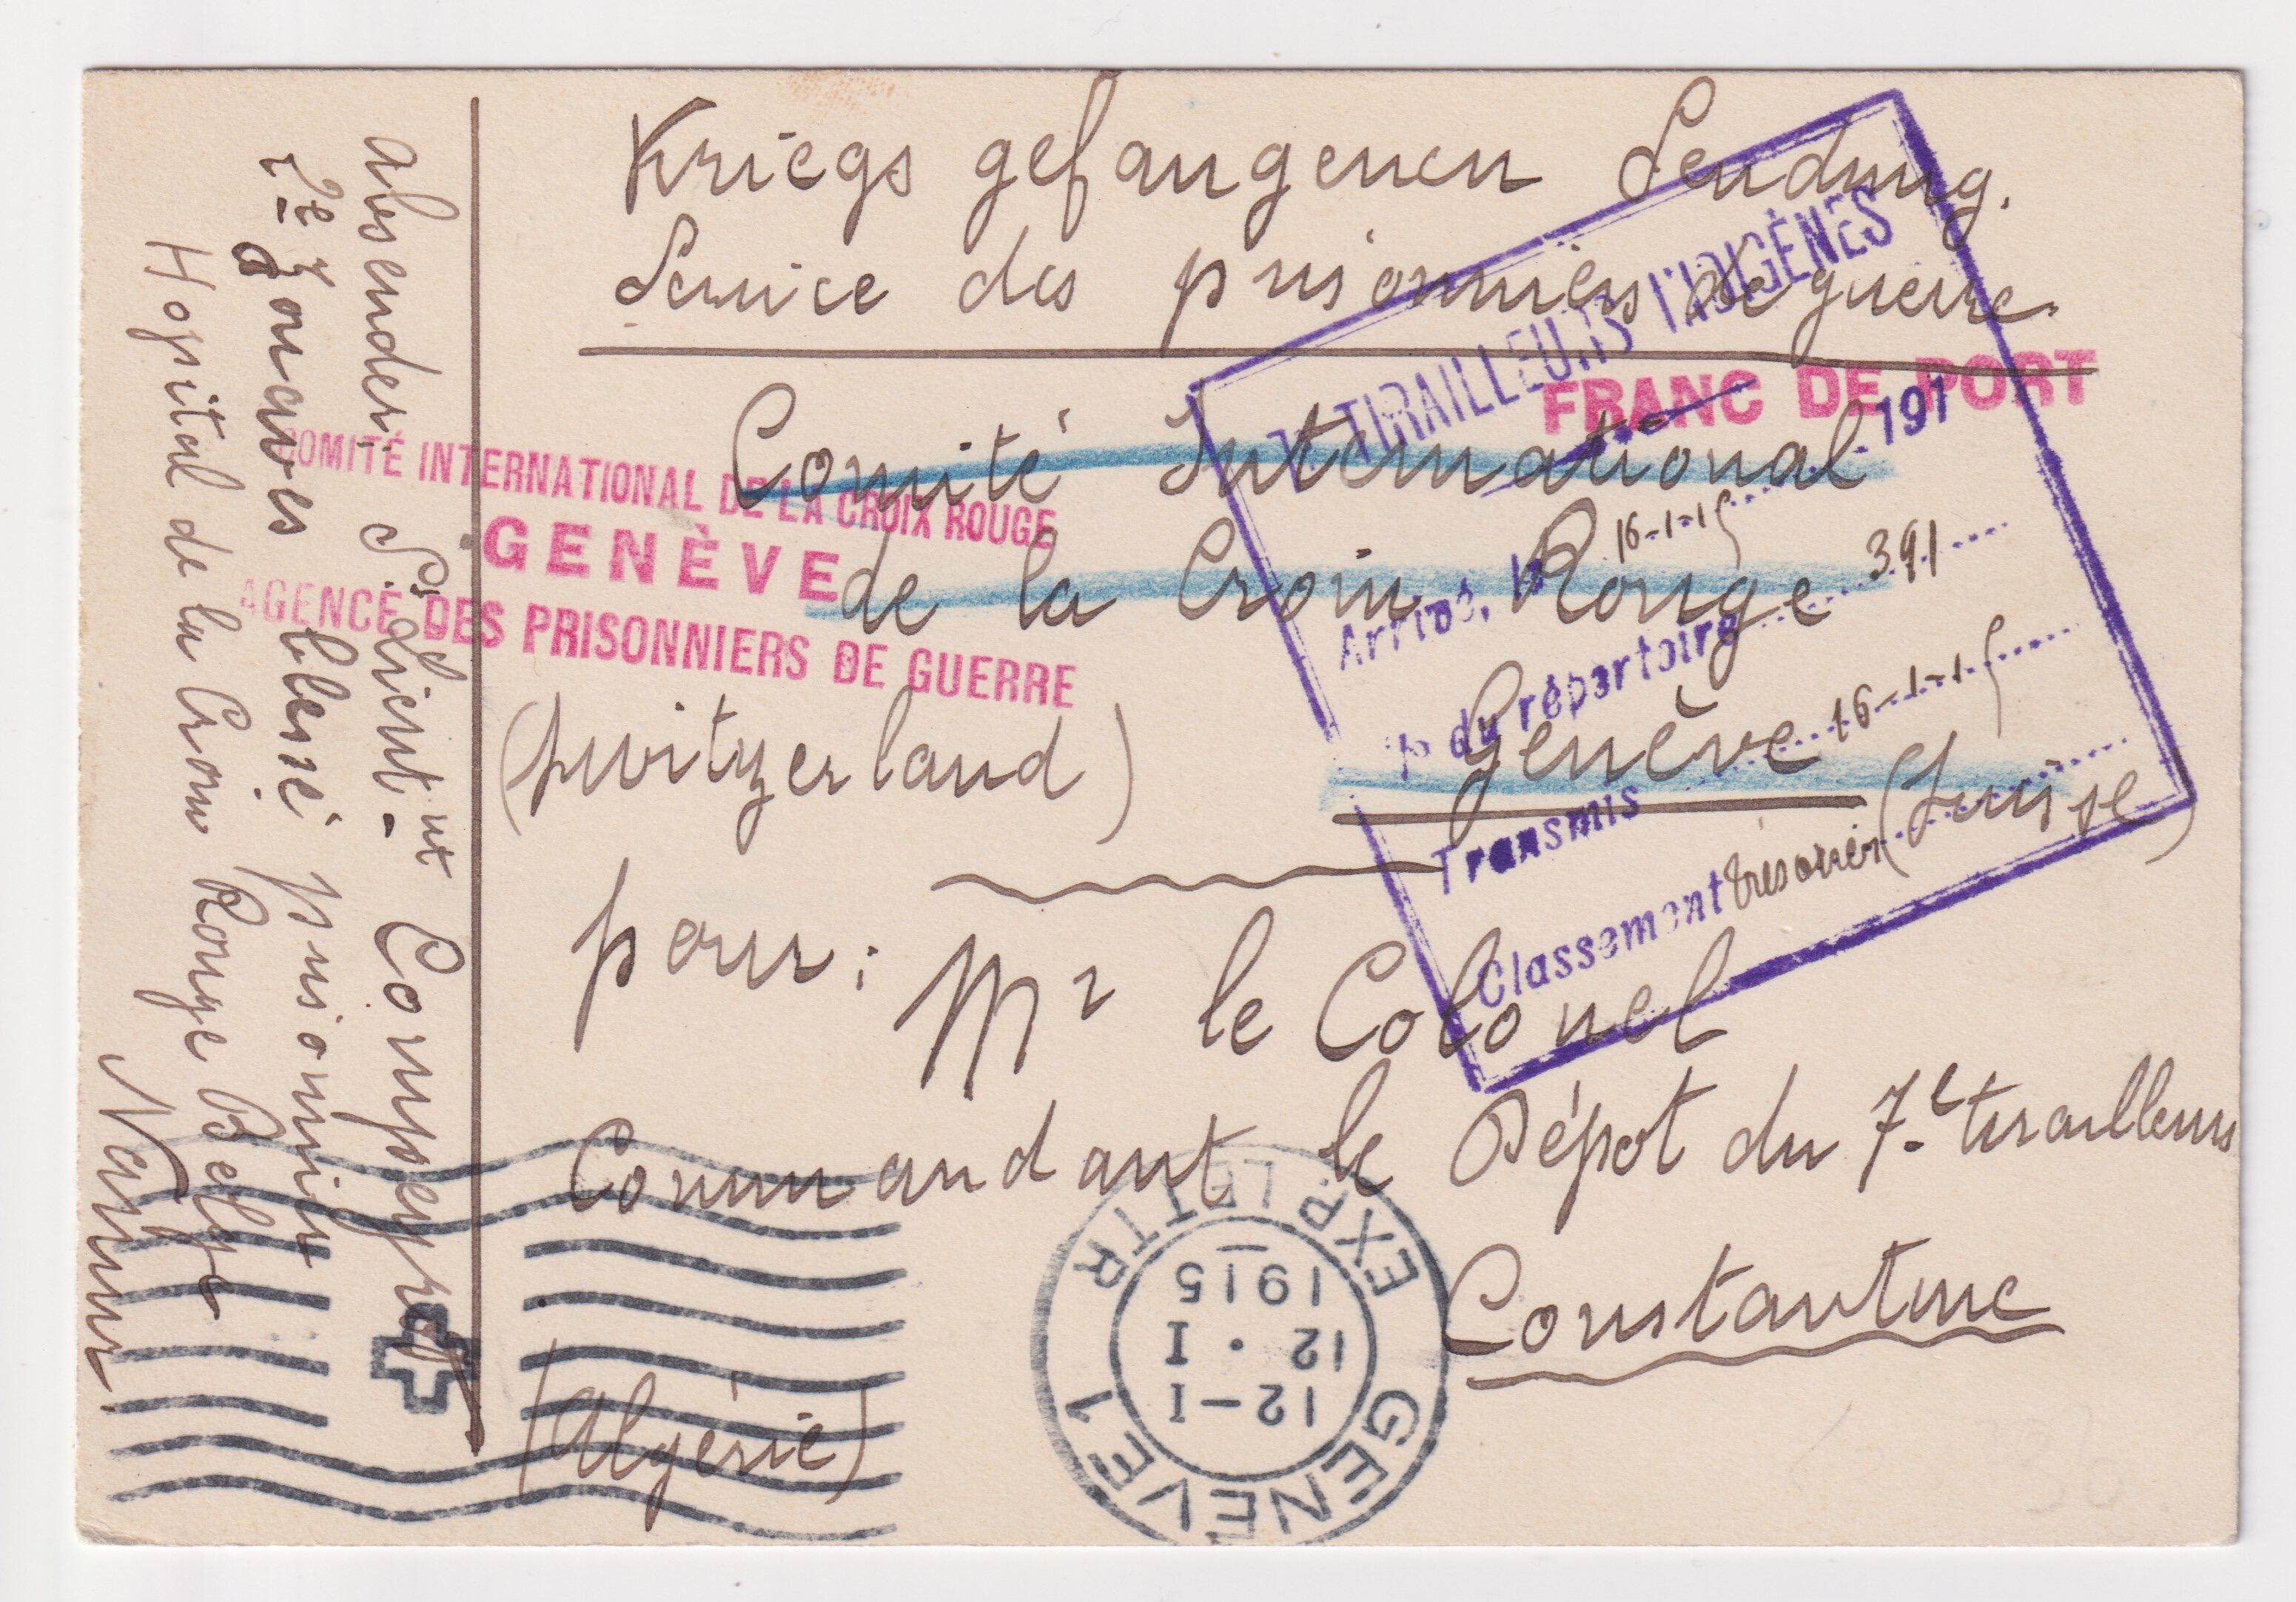 Kriegs gefangenen Sendung.
Service des prisonniers de guerre.
FRANC DE PORT
Comité International
de la Croix Rouge
Genève (Suisse)
(Switzerland)
pour : Mr le Colonel
Commandant le Dépôt du 7e tirailleurs
Constantine
(Algérie)
COMITÉ INTERNATIONAL DE LA CROIX ROUGE
GENÈVE
AGENCE DES PRISONNIERS DE GUERRE
TIRAILLEURS INDIGÈNES
191
Arrivé, le 16-1-15
du répertoire 391
Transmis 16-1-15
Classement trésorier
absender. Ss Lieut.nt
2e Zouaves blessé prisonnier
Hopital de la Croix Rouge Belge
Namur.
GENÈVE 1
EXP. LETTR
12-I
12 • I
1915